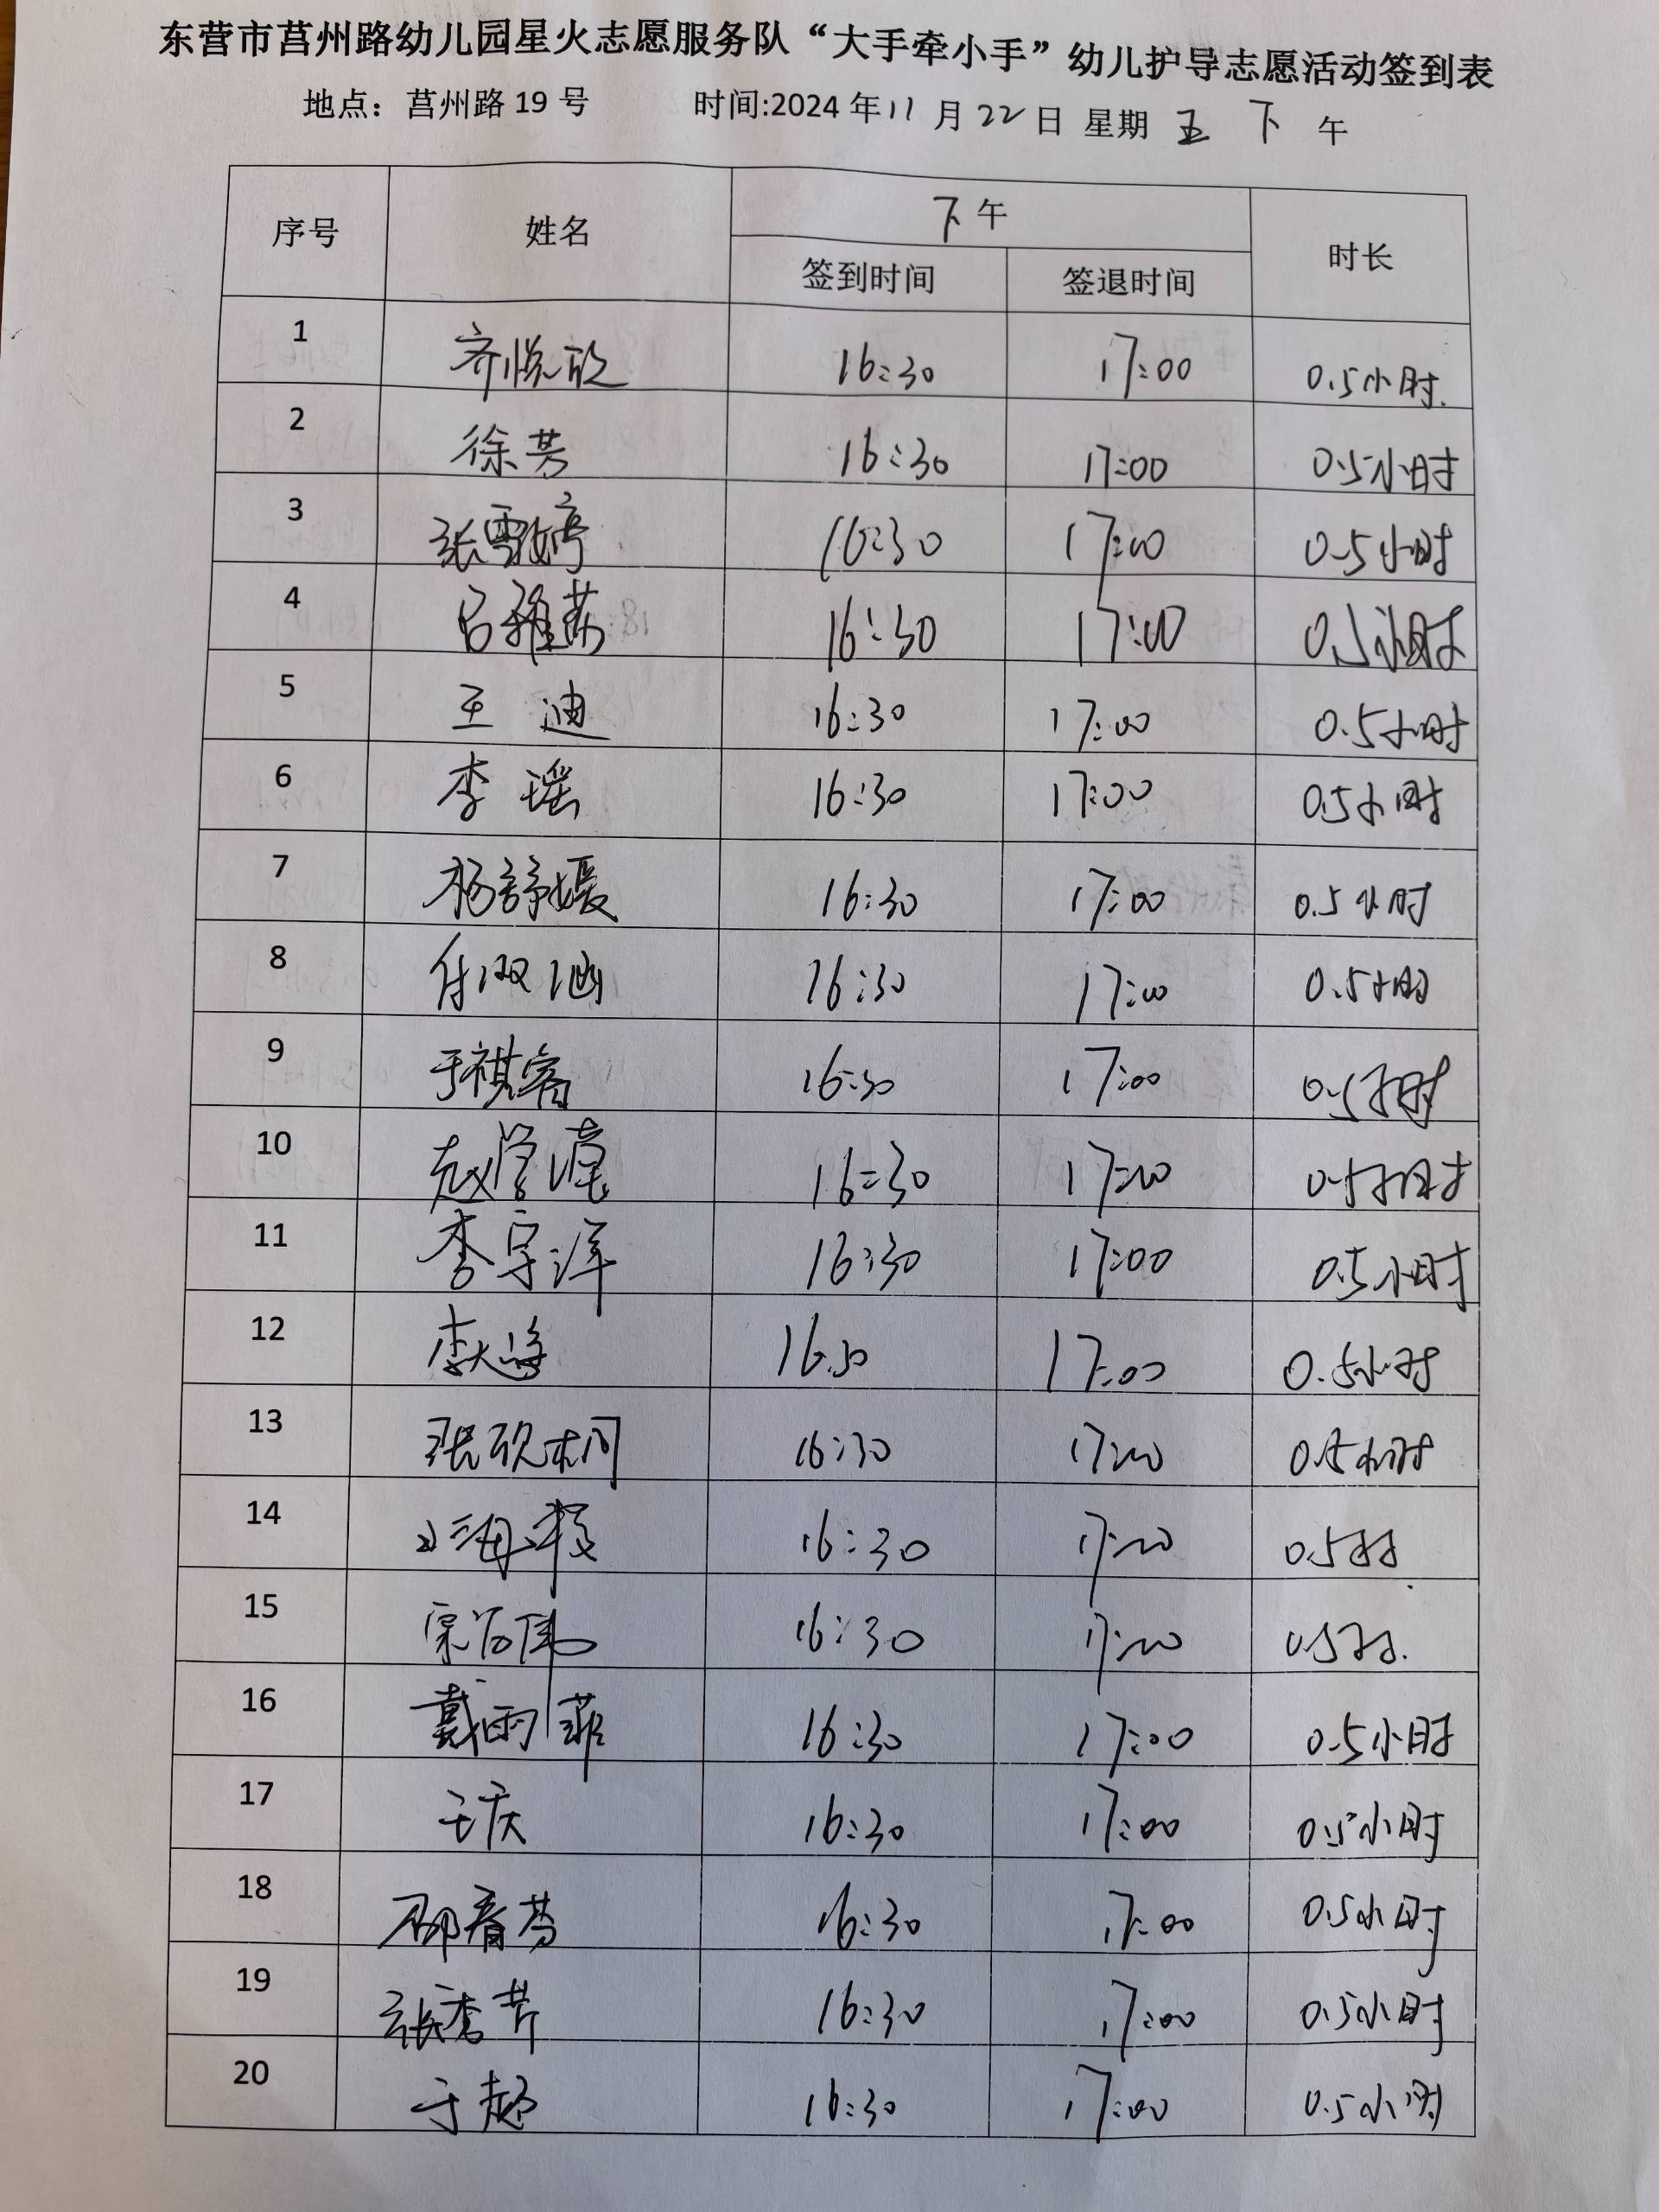 东营市莒州路幼儿园星火志愿服务队“大手牵小手”幼儿护导志愿活动签到表
地点：莒州路 19 号 时间:2024 年 11 月 22 日 星期 五 下 午
序号 姓名 下午 时长
签到时间 签退时间
1 齐悦欣 16:30 17:00 0.5小时.
2 徐芳 16:30 17:00 0.5小时
3 张雪婷 16:30 17:00 0.5小时
4 吕雅茹 16:30 17:00 0.5小时
5 王迪 16:30 17:00 0.5小时
6 李瑶 16:30 17:00 0.5小时
7 杨舒媛 16:30 17:00 0.5小时
8 付双涵 16:30 17:00 0.5小时
9 于祺客 16:30 17:00 0.5小时
10 赵学 16:30 17:00 0.5小时
11 李宗洋 16:30 17:00 0.5小时
12 16:30 17:00 0.5小时
13 张砚桐 16:30 17:00 0.5小时
14 16:30 17:00 0.5小时
15 16:30 17:00 0.5小时.
16 戴雨菲 16:30 17:00 0.5小时
17 王庆 16:30 17:00 0.5小时
18 邵春芳 16:30 17:00 0.5小时
19 张秀芹 16:30 17:00 0.5小时
20 于超 16:30 17:00 0.5小时